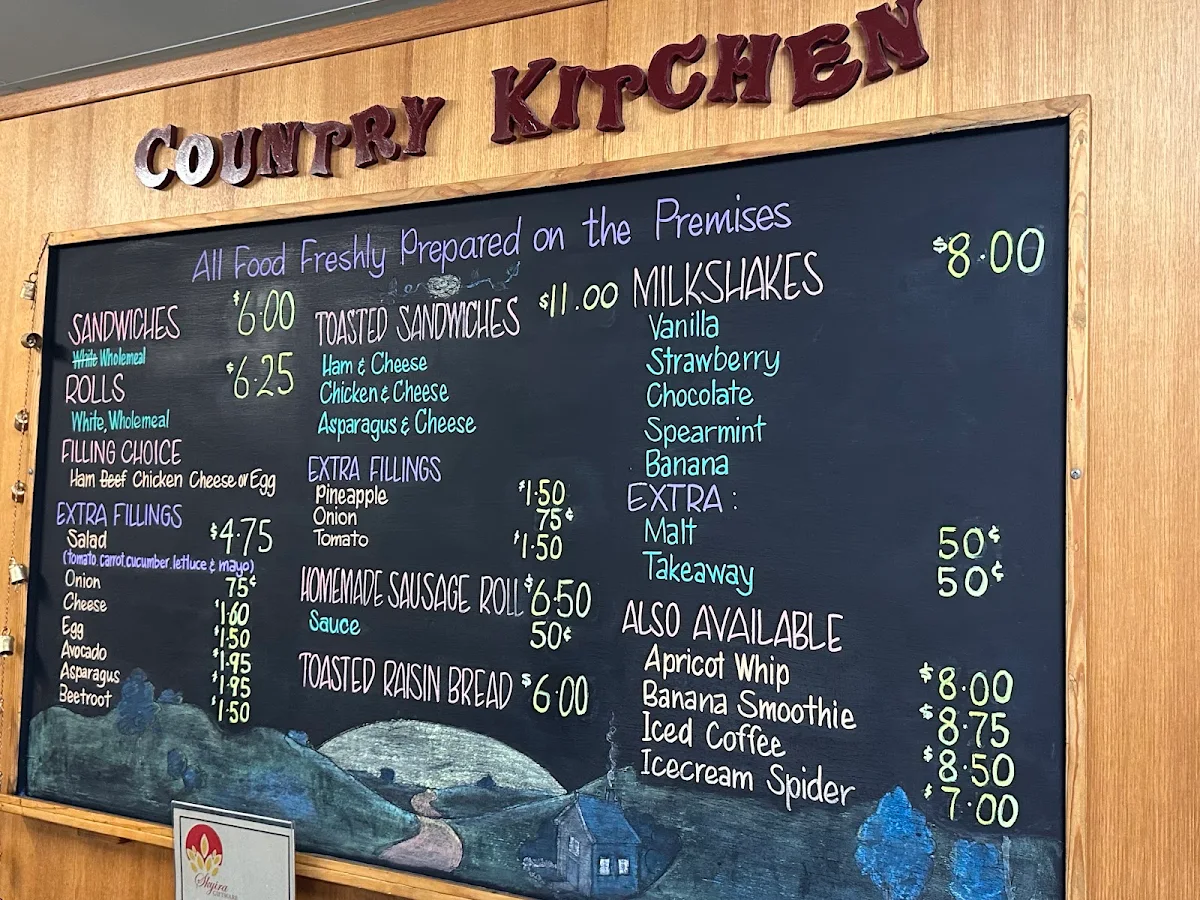 COUNTRY KITCHEN
All Food Freshly Prepared on the Premises
SANDWICHES $6.00
White Wholemeal
ROLLS $6.25
White, Wholemeal
FILLING CHOICE
Ham Beef Chicken Cheese or Egg
EXTRA FILLINGS
Salad $4.75
(tomato, carrot, cucumber, lettuce & mayo)
Onion 75¢
Cheese $1.60
Egg $1.50
Avocado $1.95
Asparagus $1.95
Beetroot $1.50
TOASTED SANDWICHES $11.00
Ham & Cheese
Chicken & Cheese
Asparagus & Cheese
EXTRA FILLINGS
Pineapple $1.50
Onion 75¢
Tomato $1.50
HOMEMADE SAUSAGE ROLL $6.50
Sauce 50¢
TOASTED RAISIN BREAD $6.00
MILKSHAKES $8.00
Vanilla
Strawberry
Chocolate
Spearmint
Banana
EXTRA:
Malt 50¢
Takeaway 50¢
ALSO AVAILABLE
Apricot Whip $8.00
Banana Smoothie $8.75
Iced Coffee $8.50
Icecream Spider $7.00
Skyira